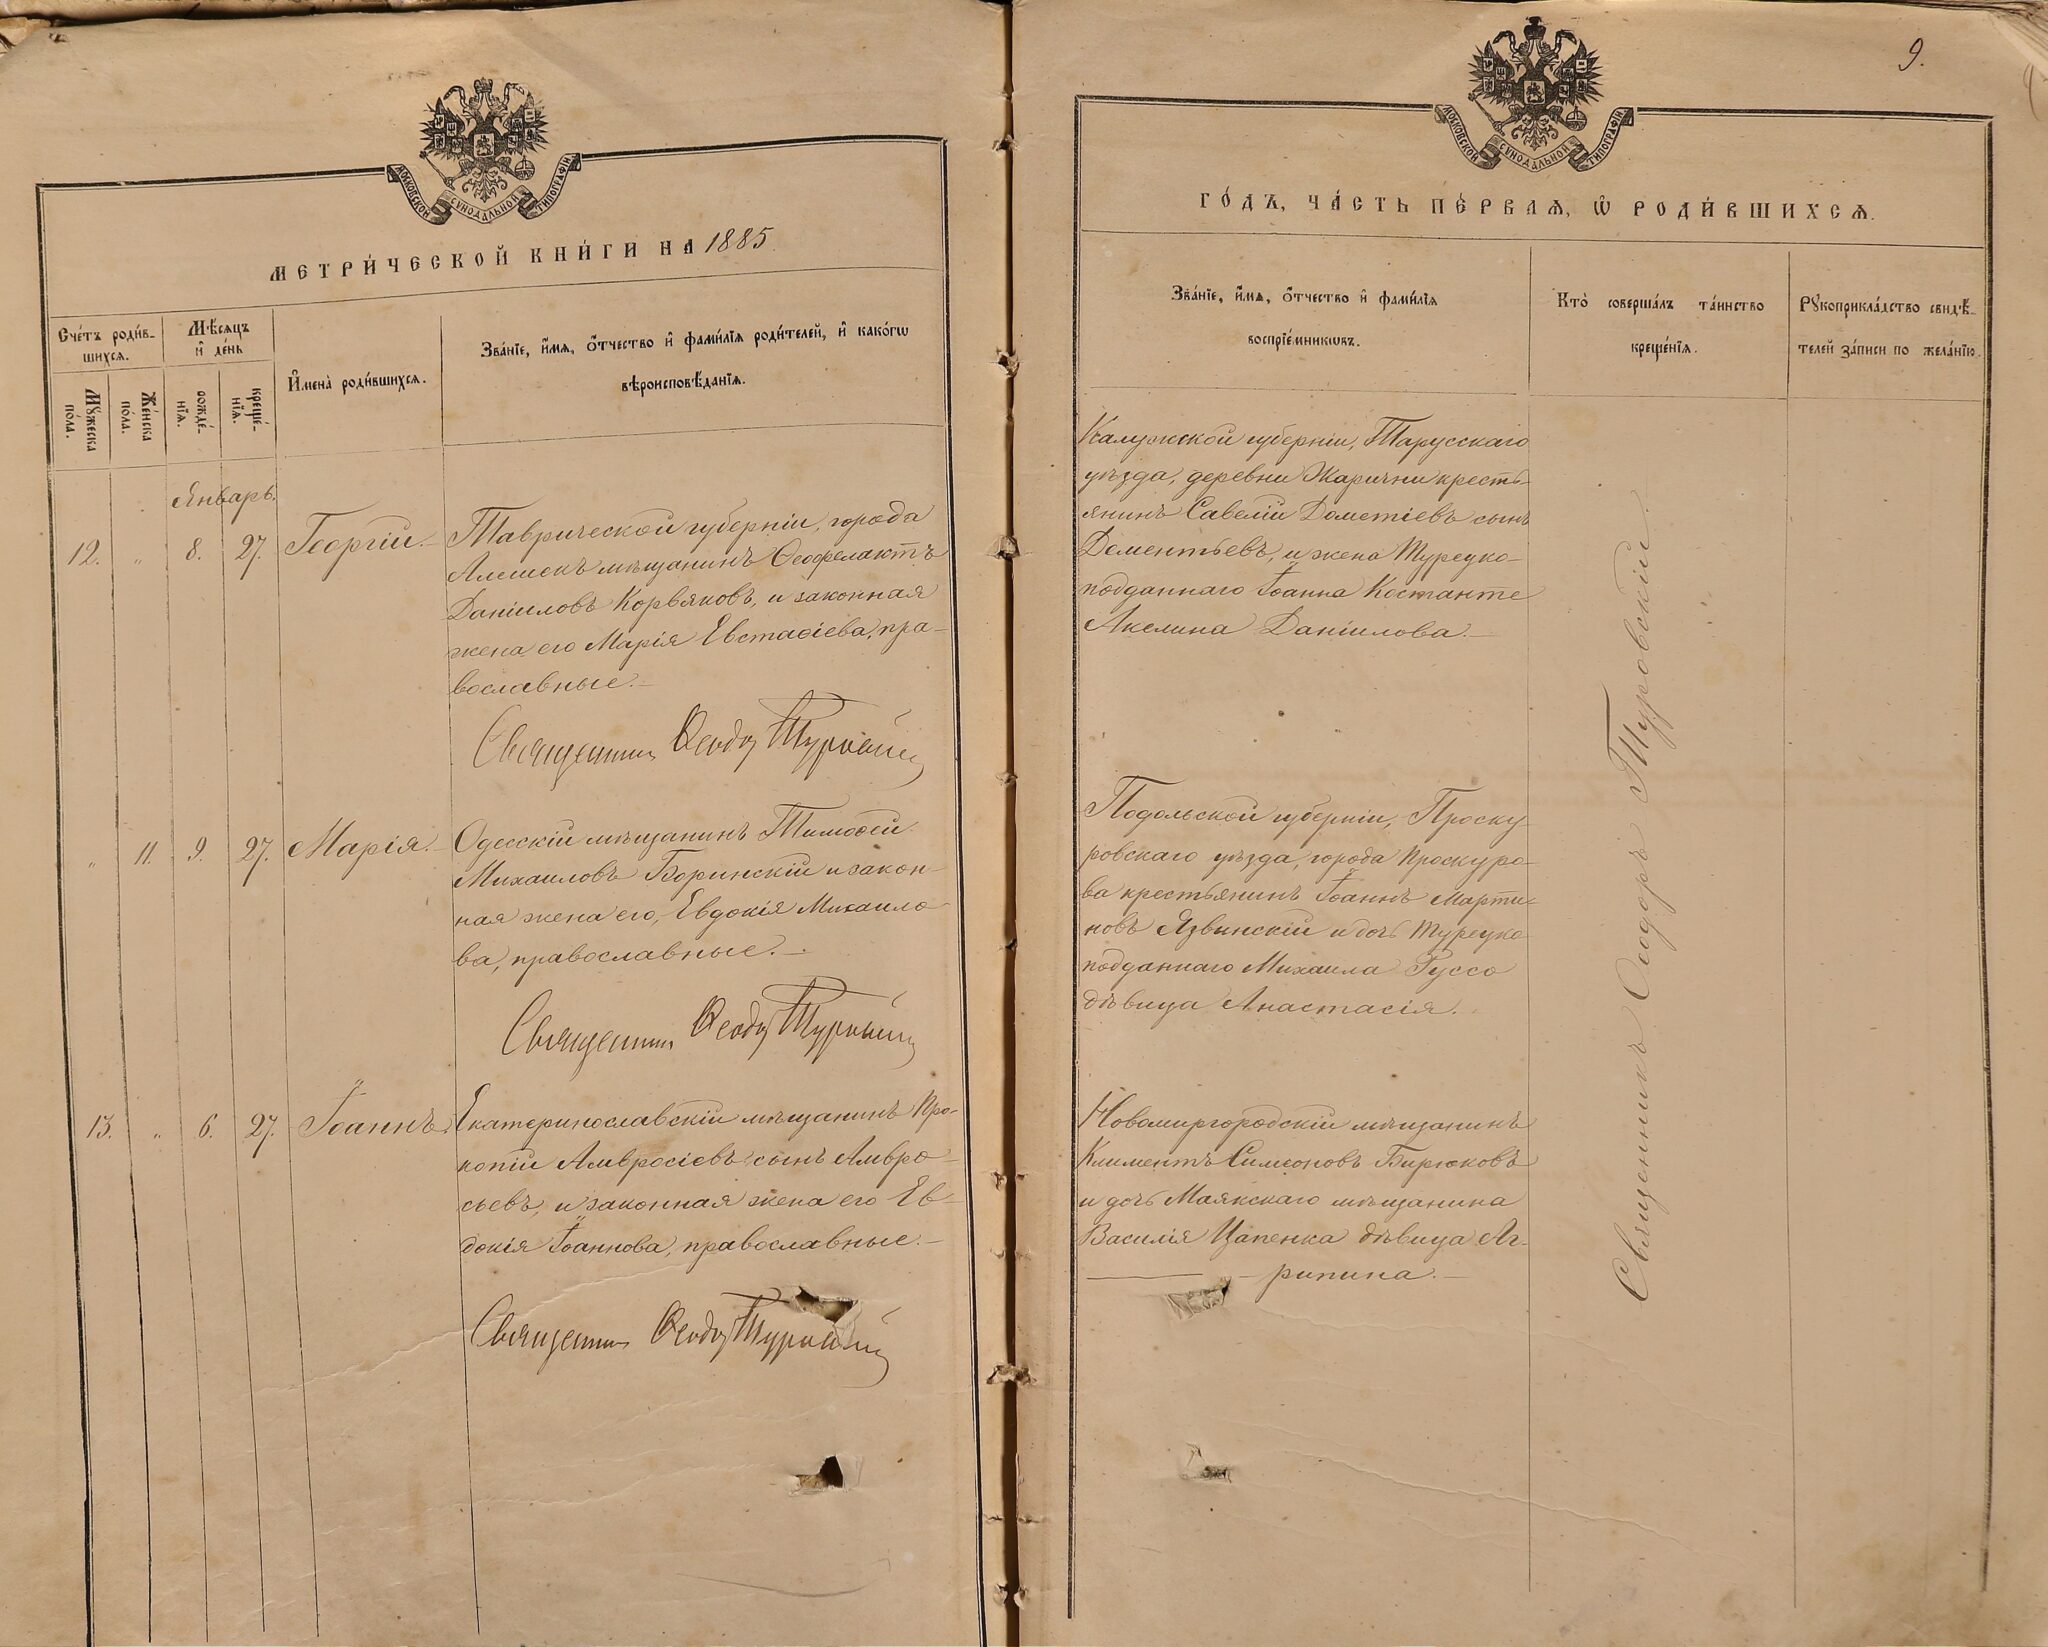 МОСКОВСКОЙ СУНОДАЛЬНОЙ ТИПОГРАФІИ
МЕТРИ́ЧЕСКОЙ КНИ́ГИ НА 1885
Сче́тъ роди́в-
шихсѧ.
Мꙋ́жеска
по́ла.
Же́нска
по́ла.
Мѣ́сѧцъ
и҆ де́нь
рожде́-
нїѧ.
креще́-
нїѧ.
И҆мена̀ роди́вшихсѧ.
Зва́нїе, и҆́мѧ, ѻ҆́тчество и҆ фами́лїѧ роди́телей, и҆ како́гѡ
вѣроисповѣ́данїѧ.
Январь.
12. " 8. 27. Георгій.
Таврической губерніи, города
Алешек мѣщанинъ Ѳеофелактъ
Даніиловъ Корвяковъ, и законная
жена его Марія Евстаѳіева, пра-
вославные.
Священник Ѳеодор Туровскій
" 11. 9. 27. Марія.
Одесскій мѣщанинъ Тимоѳей
Михаиловъ Боринскій и закон-
ная жена его, Евдокія Михаило-
ва, православные.
Священник Ѳеодор Туровскій
13. " 6. 27. Іоаннъ.
Екатеринославскій мѣщанинъ Про-
копій Амвросіевъ сынъ Амвро-
сьевъ, и законная жена его Ев-
докія Іоаннова, православные.
Священник Ѳеодор Туровскій
9.
МОСКОВСКОЙ СУНОДАЛЬНОЙ ТИПОГРАФІИ
ГО́ДЪ, ЧА́СТЬ ПЕ́РВАѦ, Ѡ҆ РОДИ́ВШИХСѦ.
Зва́нїе, и҆́мѧ, ѻ҆́тчество и҆ фами́лїѧ
воспрїе́мникѡвъ.
Кто̀ соверша́лъ та́инство
креще́нїѧ.
Рꙋкоприкла́дство свидѣ́-
телей за́писи по жела́нїю.
Калужской губерніи, Тарусскаго
уѣзда, деревни Жарични кресть-
янинъ Савелій Дометіевъ сынъ
Дементьевъ, и жена Турецко-
подданнаго Іоанна Костанте
Акелина Даніилова.
Подольской губерніи, Проску-
ровскаго уѣзда, города Проскуро-
ва крестьянинъ Іоаннъ Марти-
новъ Язвинскій и дочь Турецко-
подданнаго Михаила Руссо
дѣвица Анастасія.
Новомиргородскій мѣщанинъ
Климентъ Симеоновъ Бирюковъ
и дочь Маякскаго мѣщанина
Василія Цапенка дѣвица Аг-
рипина.
Священникъ Ѳеодоръ Туровскій.